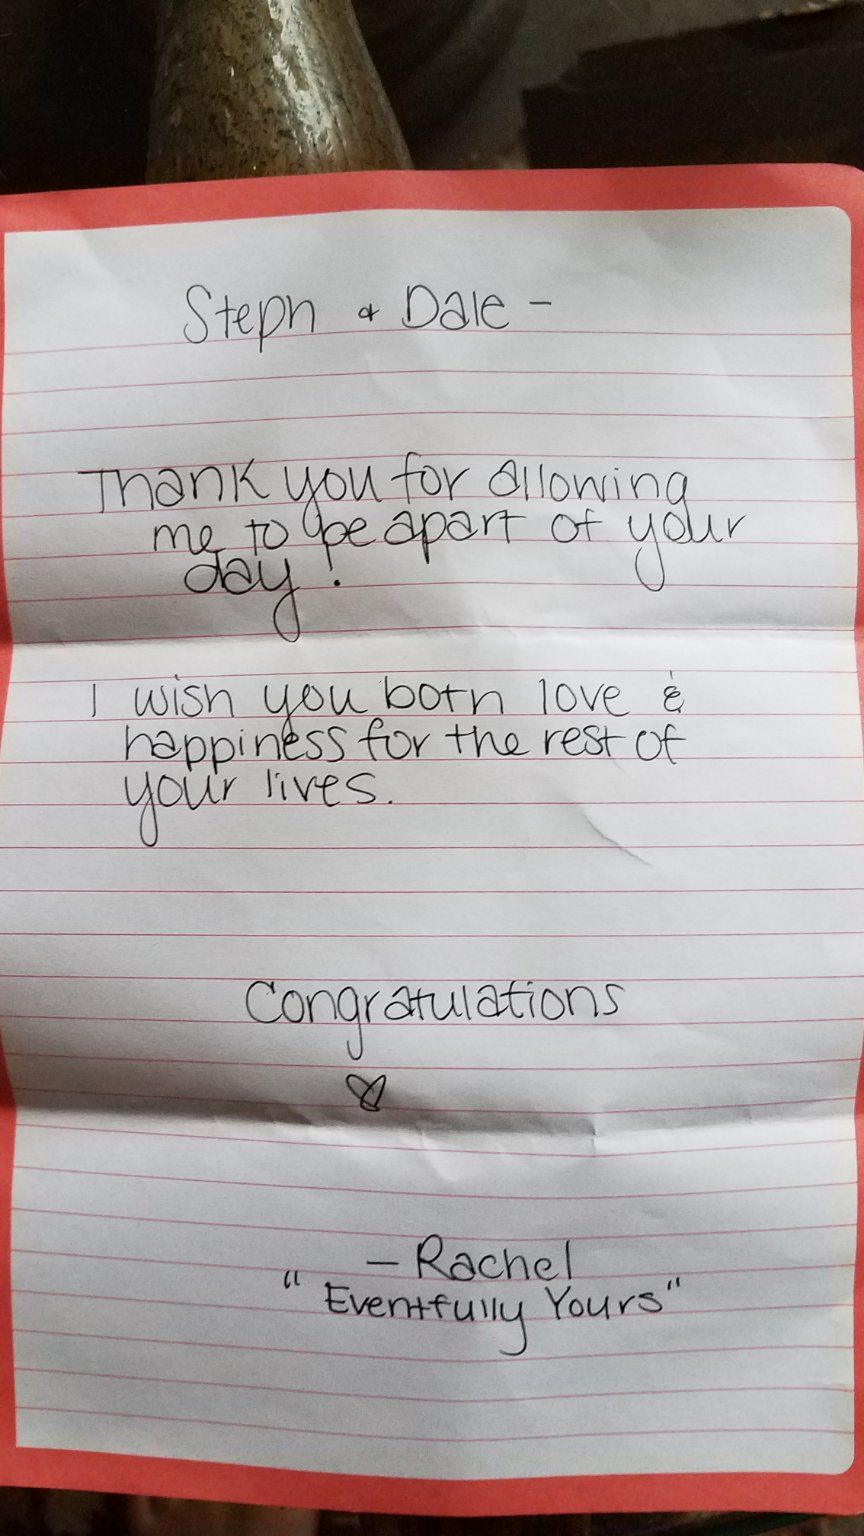 Steph & Dale -
Thank you for allowing
me to be apart of your
day!
I wish you both love &
happiness for the rest of
your lives.
Congratulations
- Rachel
"Eventfully Yours"